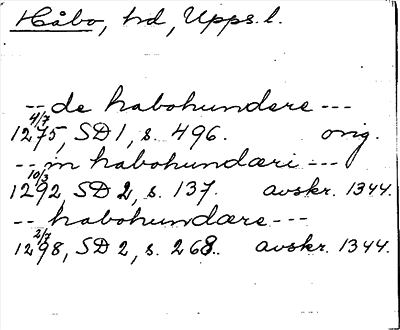 Håbo, hd, Upps. l.
-- de habohundere ---
1275, 4/7 SD 1, s. 496. orig.
-- in habohundæri ---
1292, 10/3 SD 2, s. 137. avskr. 1344.
-- habohundære ---
1298, 2/7 SD 2, s. 268. avskr. 1344.